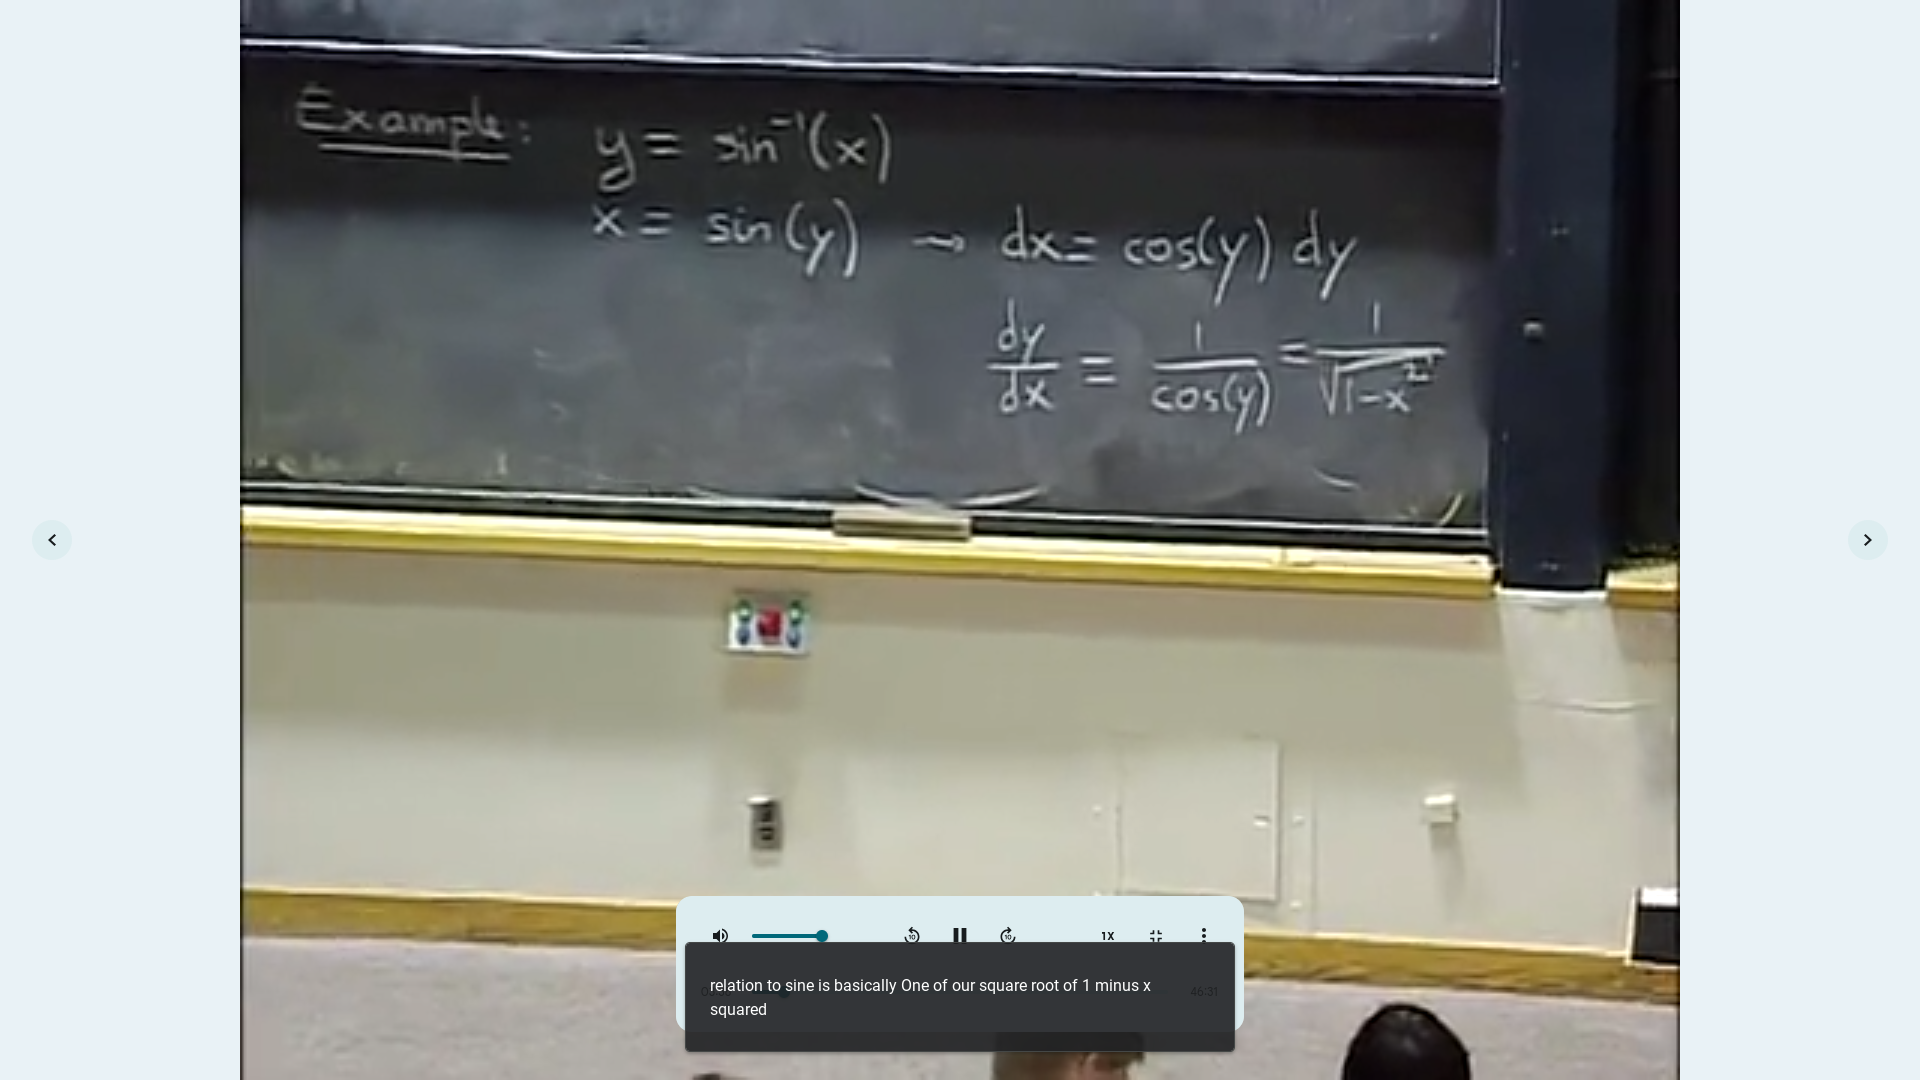 Example: y = sin⁻¹(x)
x = sin(y) → dx = cos(y) dy
dy/dx = 1/cos(y) = 1/√(1-x²)
10 10 1X
relation to sine is basically One of our square root of 1 minus x
squared
46:31